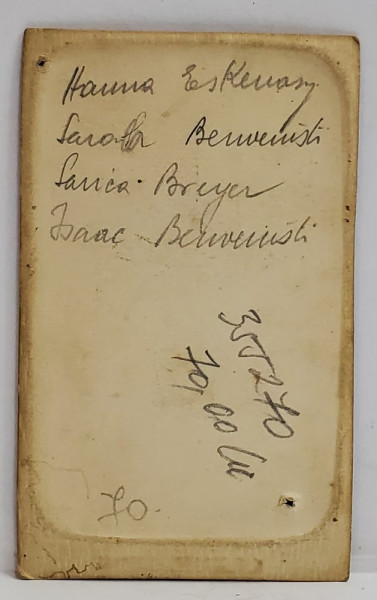 Hanna Eskenasy
Sarah Benvenisti
Sarica Breyer
Isaac Benvenisti
355270
79,00 Lei
70.